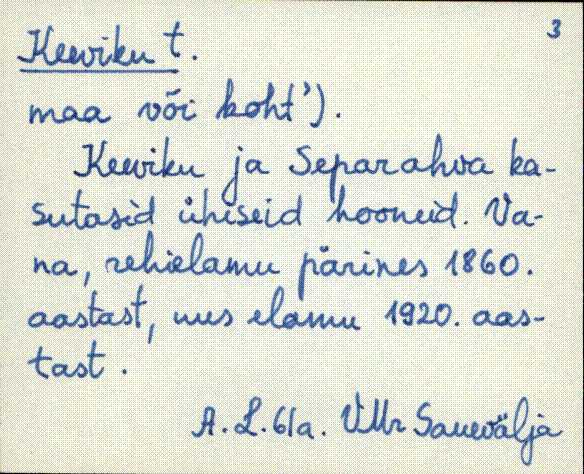 3
Keeviku t.
maa või koht').
Keeviku ja Separahva ka-
sutasid ühiseid hooneid. Va-
na, rehielamu pärines 1860.
aastast, uus elamu 1920. aas-
tast.
A. L. 61a. VMr Sauevälja